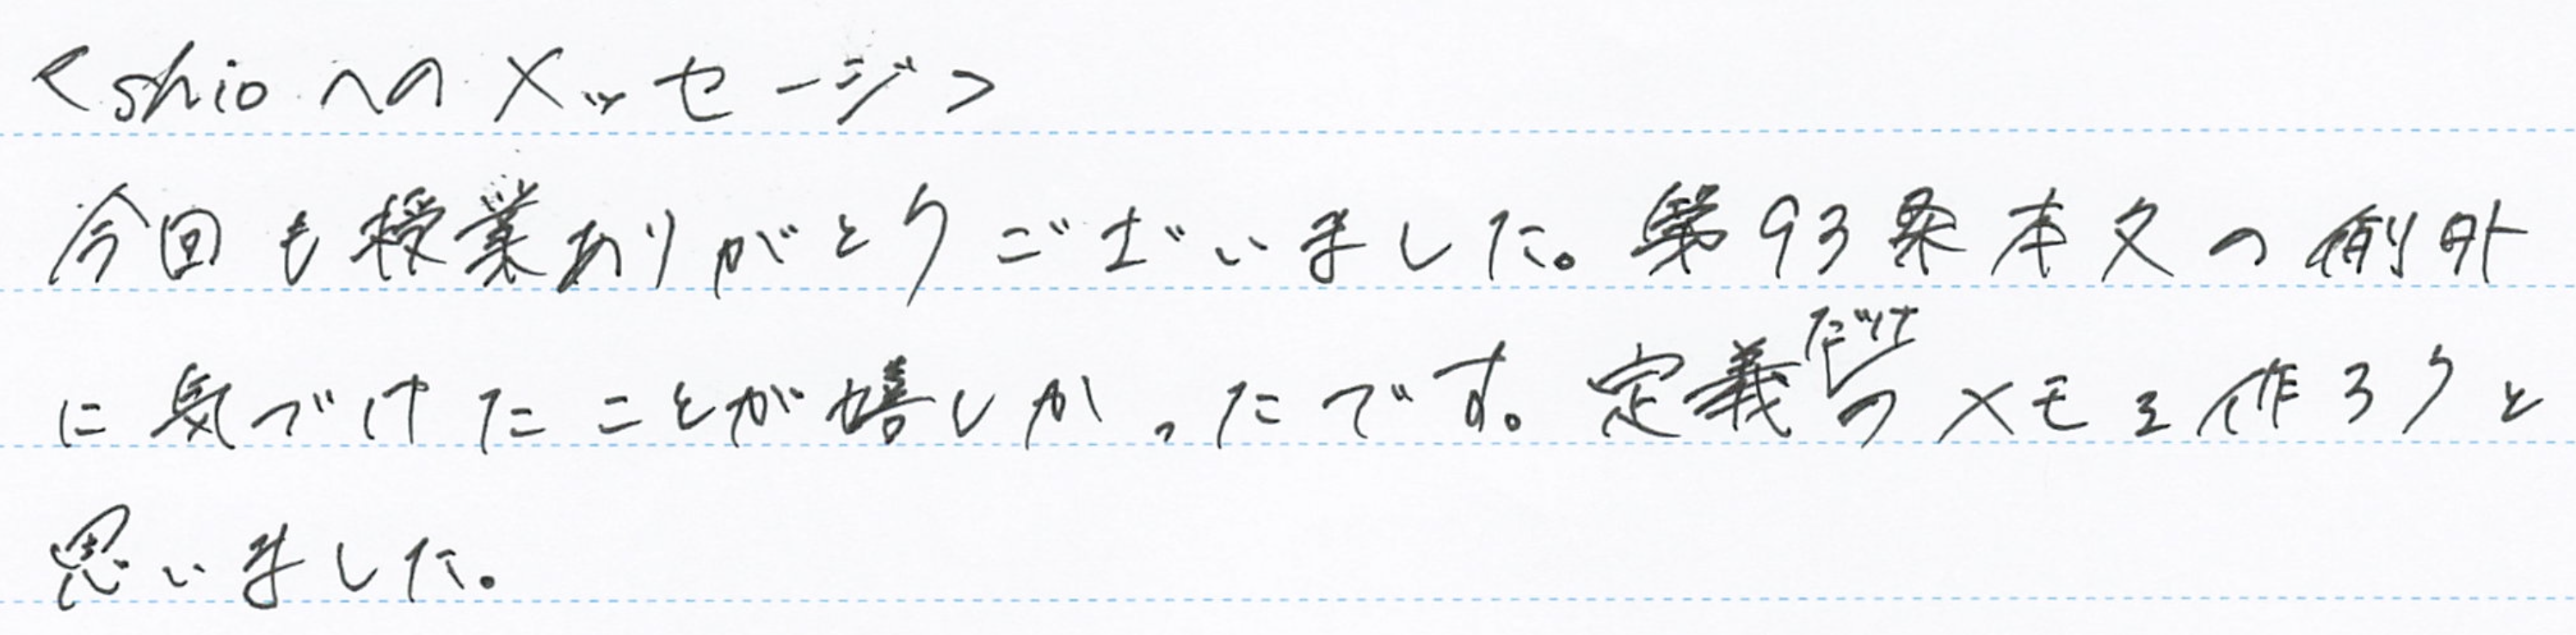 <shioへのメッセージ>
今回も授業ありがとうございました。第93条本文の例外
に気づけたことが嬉しかったです。定義だけのメモを作ろうと
思いました。